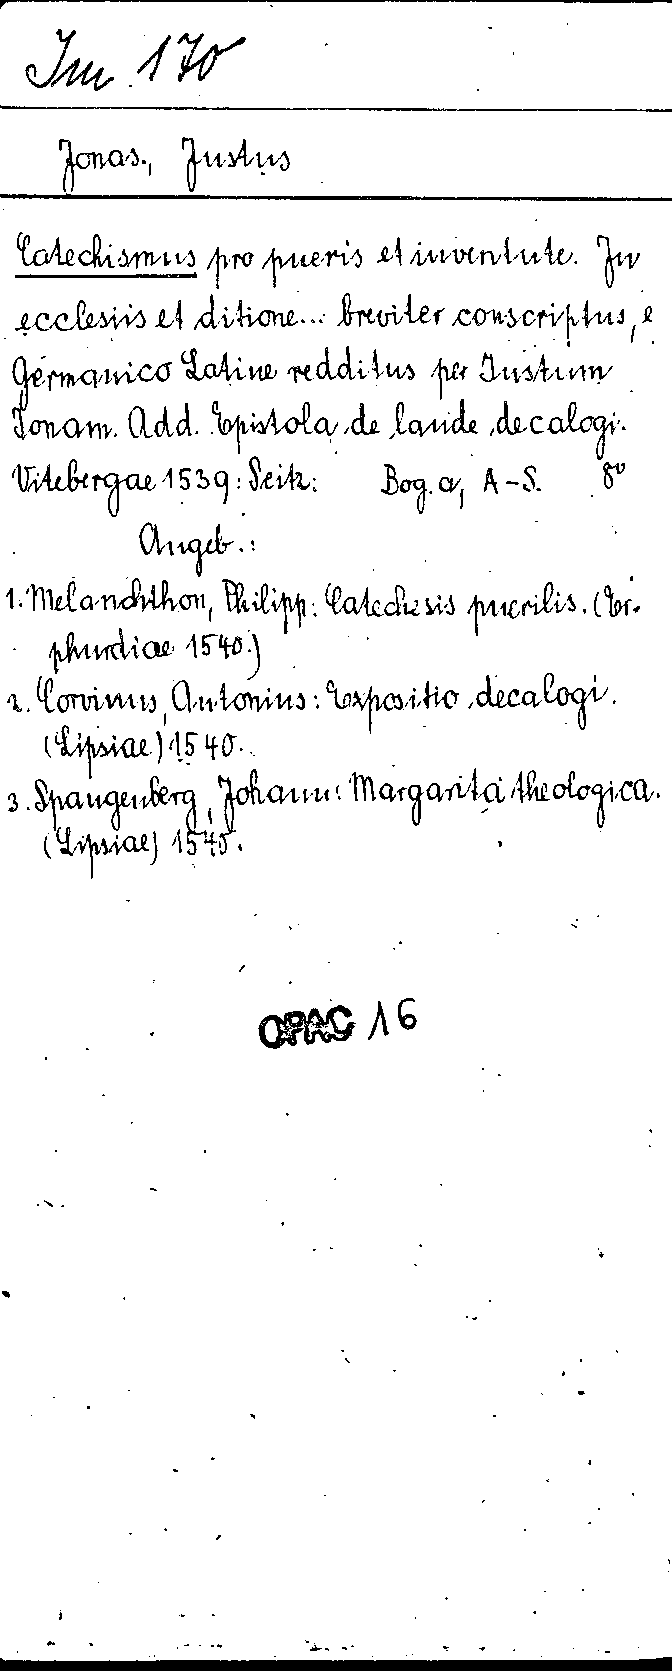 Im 170
Jonas, Justus
Catechismus pro pueris et iuventute. In
ecclesiis et ditione... breviter conscriptus, e
Germanico Latine redditus per Iustum
Ionam. Add. Epistola de laude decalogi.
Vitebergae 1539: Seitz. Bog. a, A-S. 8°
Angeb.:
1. Melanchthon, Philipp: Catechesis puerilis. (Er-
phurdiae 1540.)
2. Corvinus, Antonius: Expositio decalogi.
(Lipsiae) 1540.
3. Spangenberg, Johann: Margarita theologica.
(Lipsiae) 1540.
OPAC 16